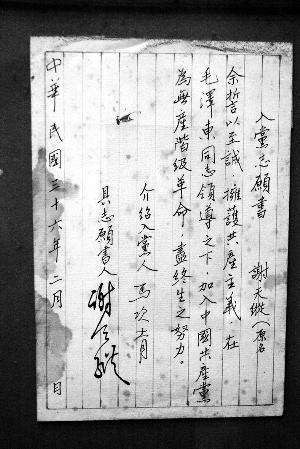 入黨志願書　謝天縱（原名
余誓以至誠．擁護共產主義．在
毛澤東同志領導之下．加入中國共產黨
為無產階級革命．盡終生之努力．
介紹入黨人
具志願書人　謝天縱
中華民國三十六年二月　日